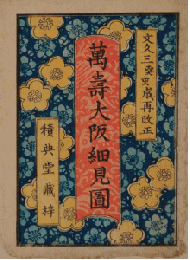 文久三癸亥歳再改正
萬壽大阪細見圖
堂蔵梓